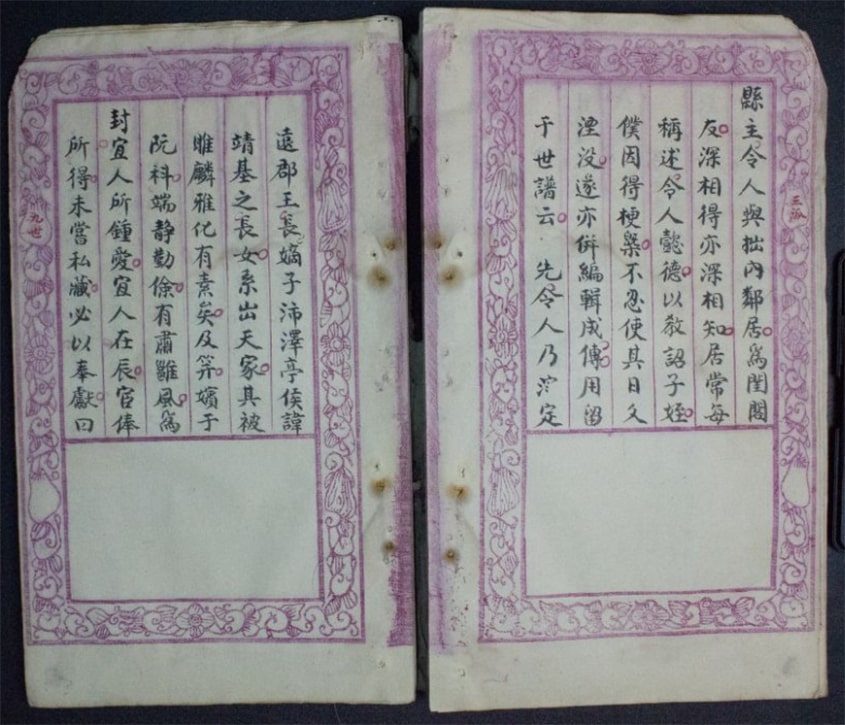 三派
縣主令人與拙內鄰居爲閨閣
友深相得亦深相知居常每
稱述令人懿德以敎詔子姪
僕因得梗槩不忍使其日久
湮没遂亦併編輯成傳用留
于世譜云 先令人乃定
遠郡王長嫡子沛澤亭侯諱
靖基之長女系出天家其被
睢麟雅化有素矣及筓嬪于
阮科端靜勤儉有肅雝風爲
封宜人所鍾愛宜人在辰官俸
所得未嘗私藏必以奉獻曰
九世